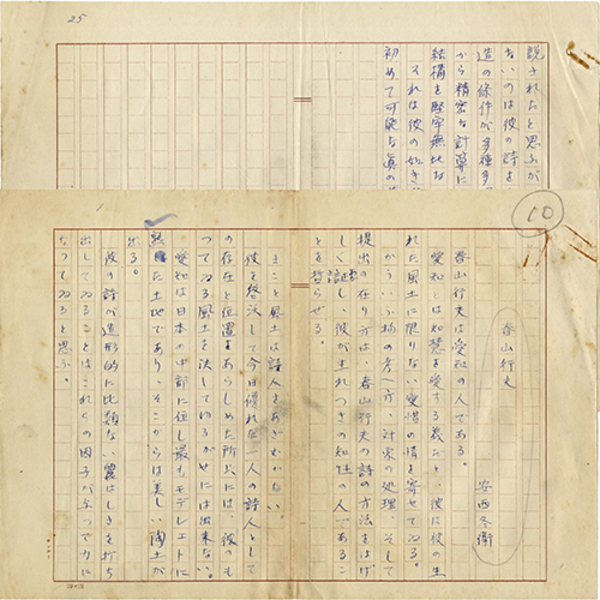 25
説されたと思ふが
ないのは彼の詩を
造の条件が多種多
から精密な計算に
結構を堅牢無比な
それは彼の如き
初めて可能な真の
10
春山行夫
安西冬衛
春山行夫は愛知の人である。
愛知とは知慧を愛する義だと、彼は彼の生
れた風土に限りない愛惜の情を寄せてゐる。
かういふ物の考へ方、対象の処理、そして
提出の在り方は、春山行夫の詩の方法をはげ
しく証し、彼が生れつきの知性の人であるこ
とを哲らせる。
まこと風土は詩人をあざむかない。
彼を啓決して今日優れた一人の詩人として
の存在と位置をあらしめた所以には、彼のも
つてゐる風土を決してゆるがせには出来ない。
愛知は日本の中部に位し最もモデレェトに
した土地であり、そこからは美しい陶土が
出る。
彼の詩が造形的に比類ない麗はしさを打ち
出してゐることはこれらの因子が与つて力に
なつてゐると思ふ。